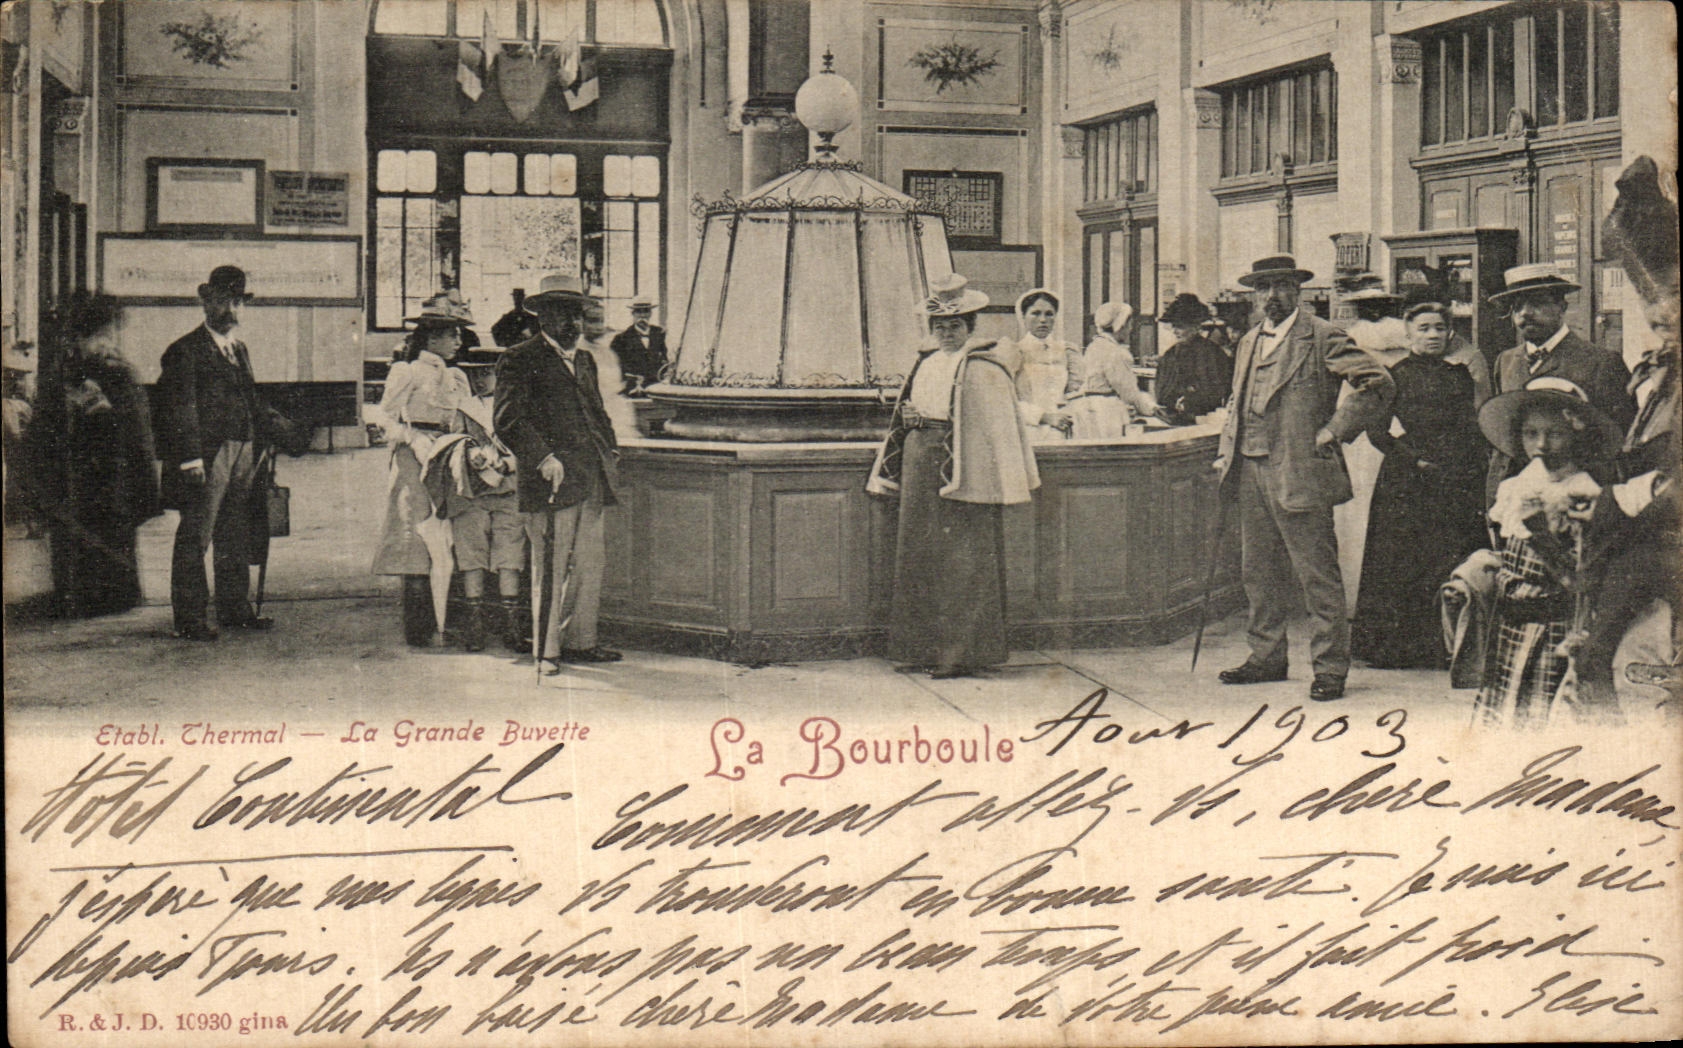 Etabl. Thermal — La Grande Buvette
La Bourboule
Aout 1903
Hôtel Continental
Comment allez-vs, chère Madame,
j'espère que mes lignes vs trouveront en bonne santé. Je suis ici
depuis jours. Ns n'avons pas un beau temps et il fait froid
Un bon baisé chère Madame de votre amie. Elise
R. & J. D. 10930 gina